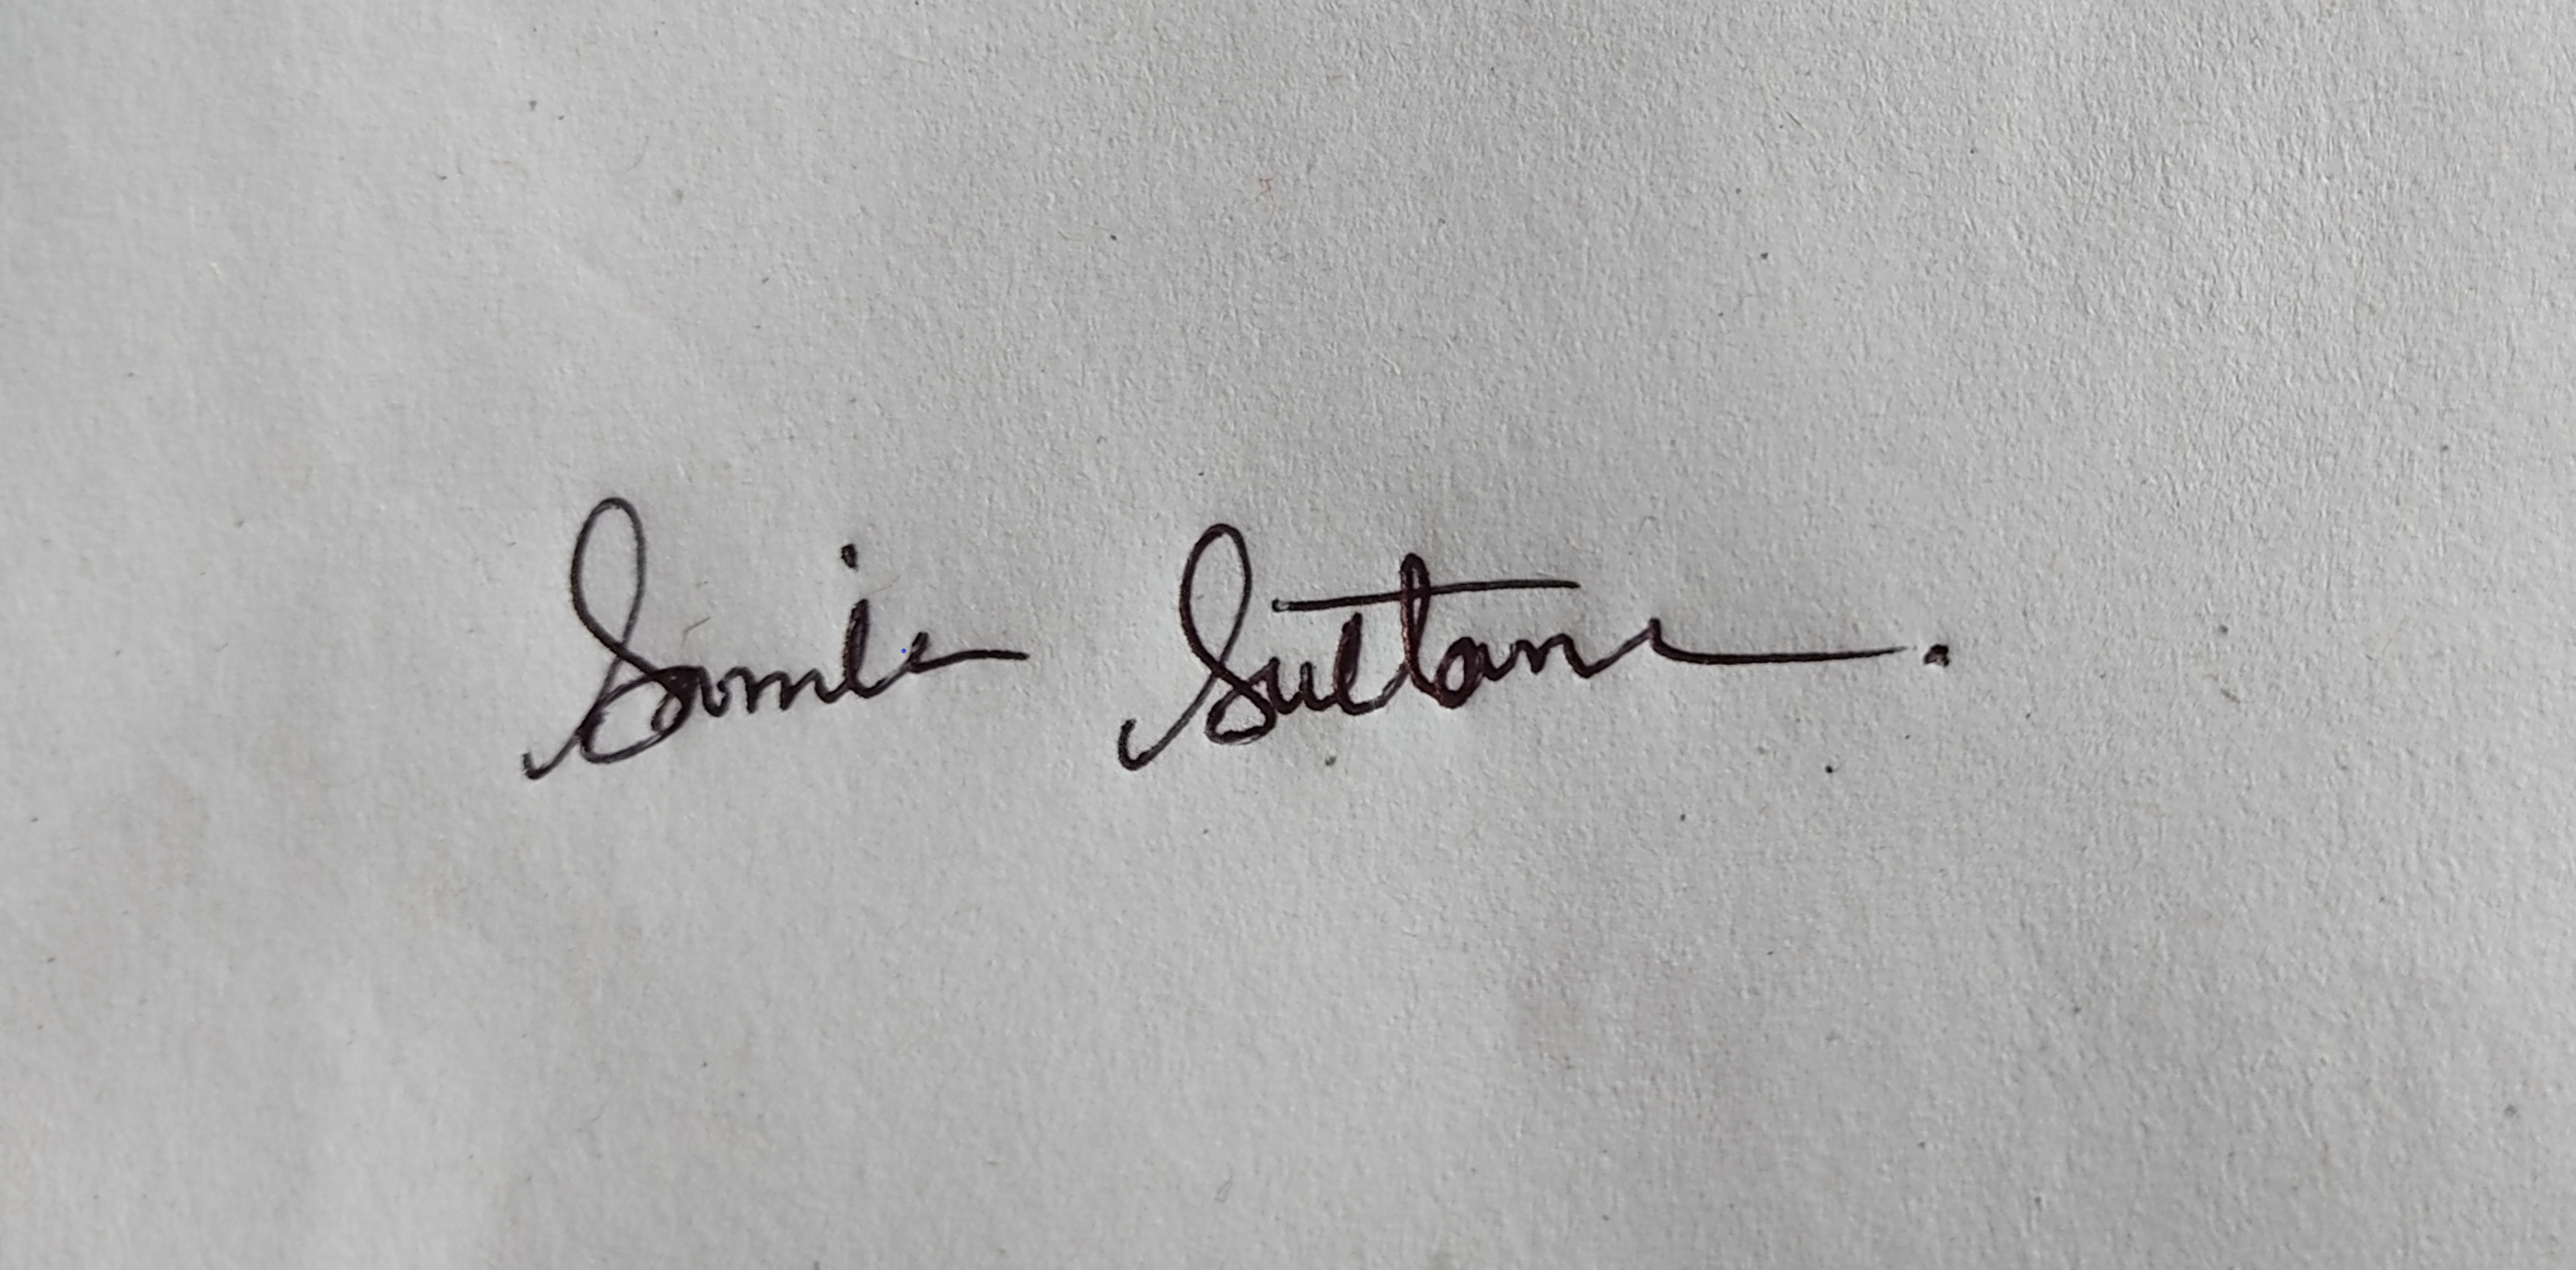 Samia Sultana.